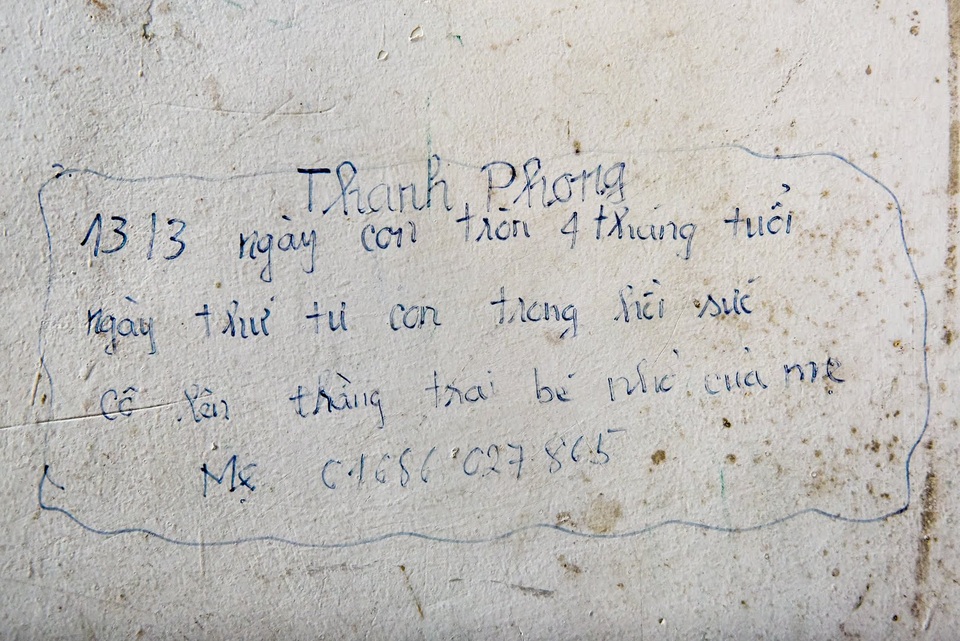 Thanh Phong
13/3 ngày con tròn 4 tháng tuổi
ngày thứ tư con trong hồi sức
Cố lên thằng trai bé nhỏ của mẹ
Mẹ 01686 027 865